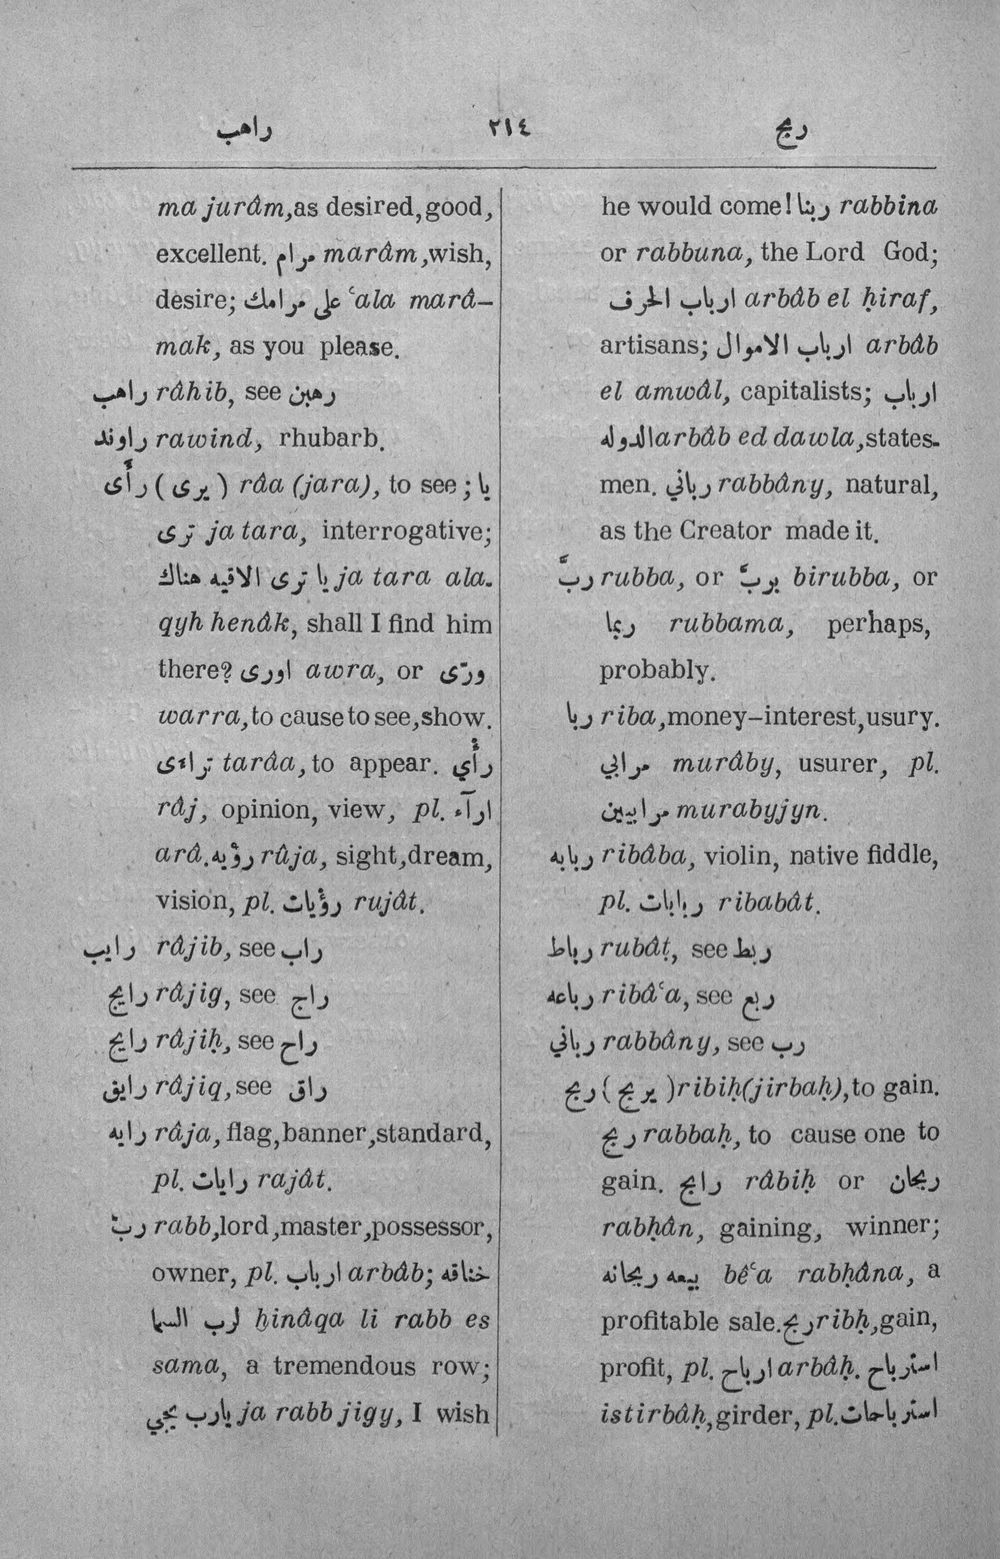 راهب ٢١٤ ربح
ma jurâm, as desired, good,
excellent. مرام marâm, wish,
desire; على مرامك ʿala marâ-
mak, as you please.
راهب râhib, see رهبن
راوند rawind, rhubarb.
رأى (يرى) râa (jara), to see; يا
ترى ja tara, interrogative;
يا ترى الاقيه هناك ja tara ala-
qyh henâk, shall I find him
there? اورى awra, or ورّى
warra, to cause to see, show.
تراءى tarâa, to appear. رأي
râj, opinion, view, pl. ارآء
arâ. رؤيه rûja, sight, dream,
vision, pl. رؤيات rujât.
رايب râjib, see راب
رايج râjig, see راج
رايح râjiḥ, see راح
رايق râjiq, see راق
رايه râja, flag, banner, standard,
pl. رايات rajât.
ربّ rabb, lord, master, possessor,
owner, pl. ارباب arbâb; خناقه
لرب السما ḫinâqa li rabb es
sama, a tremendous row;
يارب يجي ja rabb jigy, I wish
he would come! ربنا rabbina
or rabbuna, the Lord God;
ارباب الحرف arbâb el ḥiraf,
artisans; ارباب الاموال arbâb
el amwâl, capitalists; ارباب
الدوله arbâb ed dawla, states-
men. رباني rabbâny, natural,
as the Creator made it.
ربَّ rubba, or بربَّ birubba, or
ربما rubbama, perhaps,
probably.
ربا riba, money-interest, usury.
مرابي murâby, usurer, pl.
مرابيين murabyjyn.
ربابه ribâba, violin, native fiddle,
pl. ربابات ribabât.
رباط rubâṭ, see ربط
رباعه ribâʿa, see ربع
رباني rabbâny, see رب
ربح (يربح) ribiḥ (jirbaḥ), to gain.
ربح rabbaḥ, to cause one to
gain. رابح râbiḥ or ربحان
rabḥân, gaining, winner;
بيعه ربحانه bêʿa rabḥâna, a
profitable sale. ربح ribḥ, gain,
profit, pl. ارباح arbâḥ. استرباح
istirbâḥ, girder, pl. استرباحات